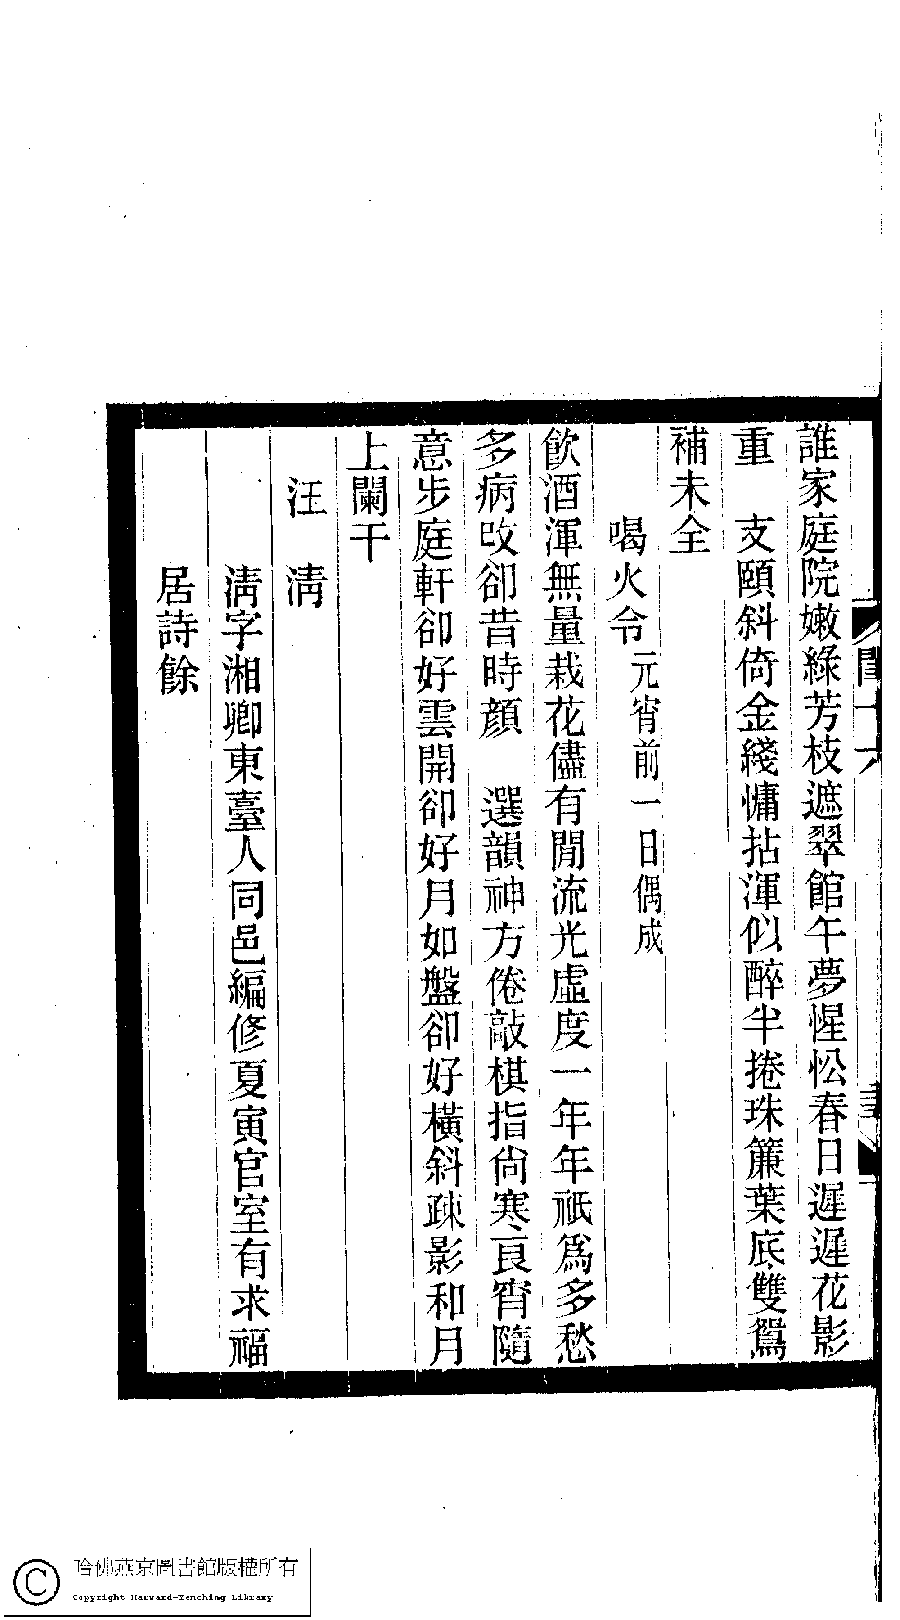 誰家庭院嫩綠芳枝遮翠館午夢惺忪春日遲遲花影
重　支頤斜倚金綫慵拈渾似醉半捲珠簾葉底雙鴛
補未全
喝火令元宵前一日偶成
飲酒渾無量栽花儘有閒流光虛度一年年祇爲多愁
多病改卻昔時顔　選韻神方倦敲棋指尙寒良宵隨
意步庭軒卻好雲開卻好月如盤卻好橫斜疎影和月
上闌干
汪　淸
淸字湘卿東臺人同邑編修夏寅官室有求福
居詩餘
哈佛燕京圖書館版權所有
Copyright Harvard-Yenching Library